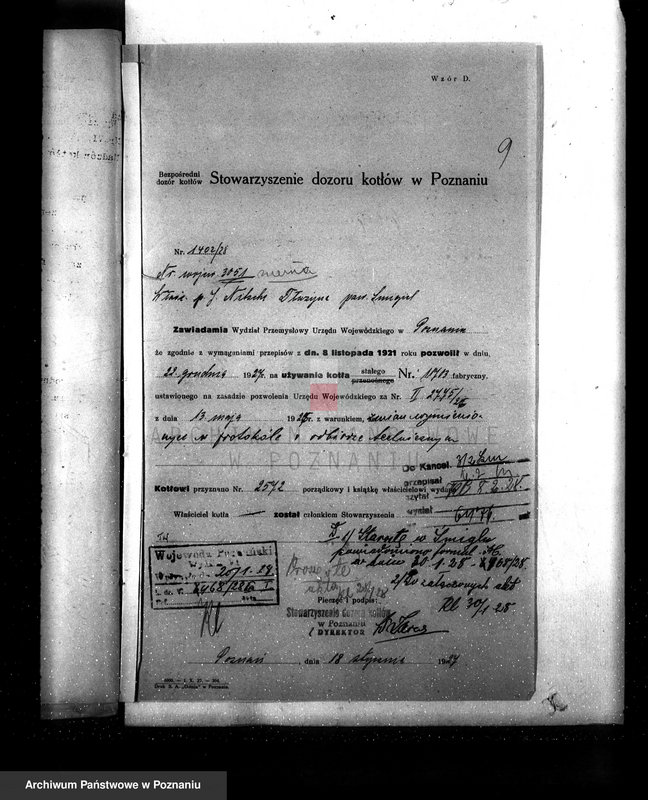 Wzór D.
9
Bezpośredni
dozór kotłów
Stowarzyszenie dozoru kotłów w Poznaniu
Nr. 1402/28
Nr. wojew. 3051
Właśc. p. J. Dłużyna pow. Śmigiel
Zawiadamia Wydział Przemysłowy Urzędu Wojewódzkiego w Poznaniu
że zgodnie z wymaganiami przepisów z dn. 8 listopada 1921 roku pozwolił w dniu,
22 grudnia 1927r. na używanie kotła stałego przenośnego Nr. 1713 fabryczny,
ustawionego na zasadzie pozwolenia Urzędu Wojewódzkiego za Nr. II 2775/26
z dnia 13 maja 192 r. z warunkiem, zmian wymienio-
nych w protokóle o odbiorze
ARCHIWUM PAŃSTWOWE
W POZNANIU
Do Kancel.
przepisał
czytał
wysłał
Kotłowi przyznano Nr. 2572 porządkowy i książkę właścicielowi wydano
Właściciel kotła — został członkiem Stowarzyszenia
Starosto w Śmiglu
w dniu 20.1.28
2/ załączonych akt
Kl 30/1 28
Wojewoda Poznański
20.1.28
L. dz. 2468/28
Pieczęć i podpis:
Stowarzyszenie dozoru kotłów
w Poznaniu
DYREKTOR
Poznań, dnia 18 stycznia 1927
Druk S. A. „Ostoja” w Poznaniu.
Archiwum Państwowe w Poznaniu